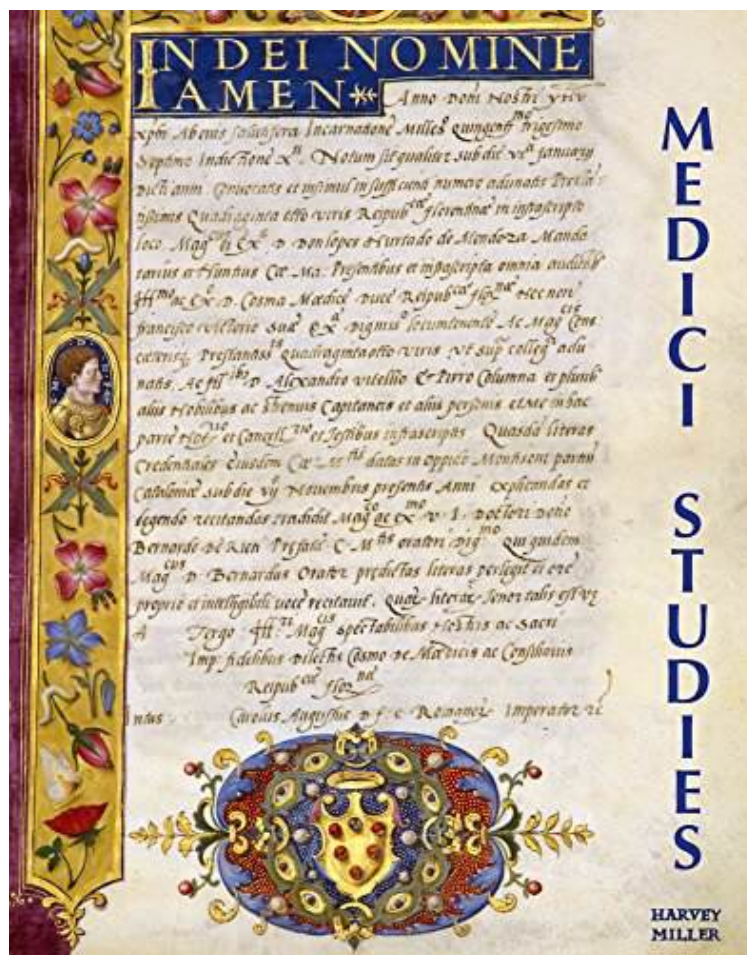 IN DEI NOMINE
AMEN
Anno Domi Nostri
Abeius salutifera Incarnatione Milles.º quingent.mo trigesimo
Septimo Indictione X.ª Notum sit qualiter sub die vi.ª January
Dicti anni Convocatis et insimul in sufficienti numero adunatis
Quadraginta otto viris Reipub.cæ florentinæ in infrascripto
loco. Mag.cus et Ex.s D. Don lopes Hurtado de Mendoza Manda
tarius et Nuntius Cæ. Ma. Presentibus et infrascripta omnia
Ill.mo ac Ex.º D. Cosma Mædice Duce Reipub.cæ flor.næ Nec non
francisco victorio suæ Ex.æ locumtenente Ac Mag.cis Cons
Quadraginta otto viris vt sup.ª colleg.s adu
natis, Ac D. Alexandro vitellio & Pirro Columna et plurib'
aliis Nobilibus ac Strenuis Capitaneis et aliis personis et Me in hac
parte et Cancell.rio et Testibus infrascriptis Quasdā literas
Credentiales Eiusdem datas in oppido Montisoni partiū
Cataloniæ sub die vij Nouembris presentis Anni explicandas et
legendo recitandas tradidit Mag.co ac Ex.mo v. I. Doctori Domino
Bernardo de Rieti Prefatæ C. M.tis oratori Dig.mo Qui quidem
Mag.cus D. Bernardus Orator predictas literas perlegit et ore
proprio et intelligibili uoce recitauit. Quar. literar. Tenor talis est vz
A Tergo Mag.cis spectabilibus Nostris ac Sacri
Imp. fidelibus Dilectis Cosmo de Mædicis ac Consiliariis
Reipub.cæ flor.næ
Intus: Carolus Augustus D. f. c. Romanor. Imperator
MEDICI STUDIES
HARVEY
MILLER